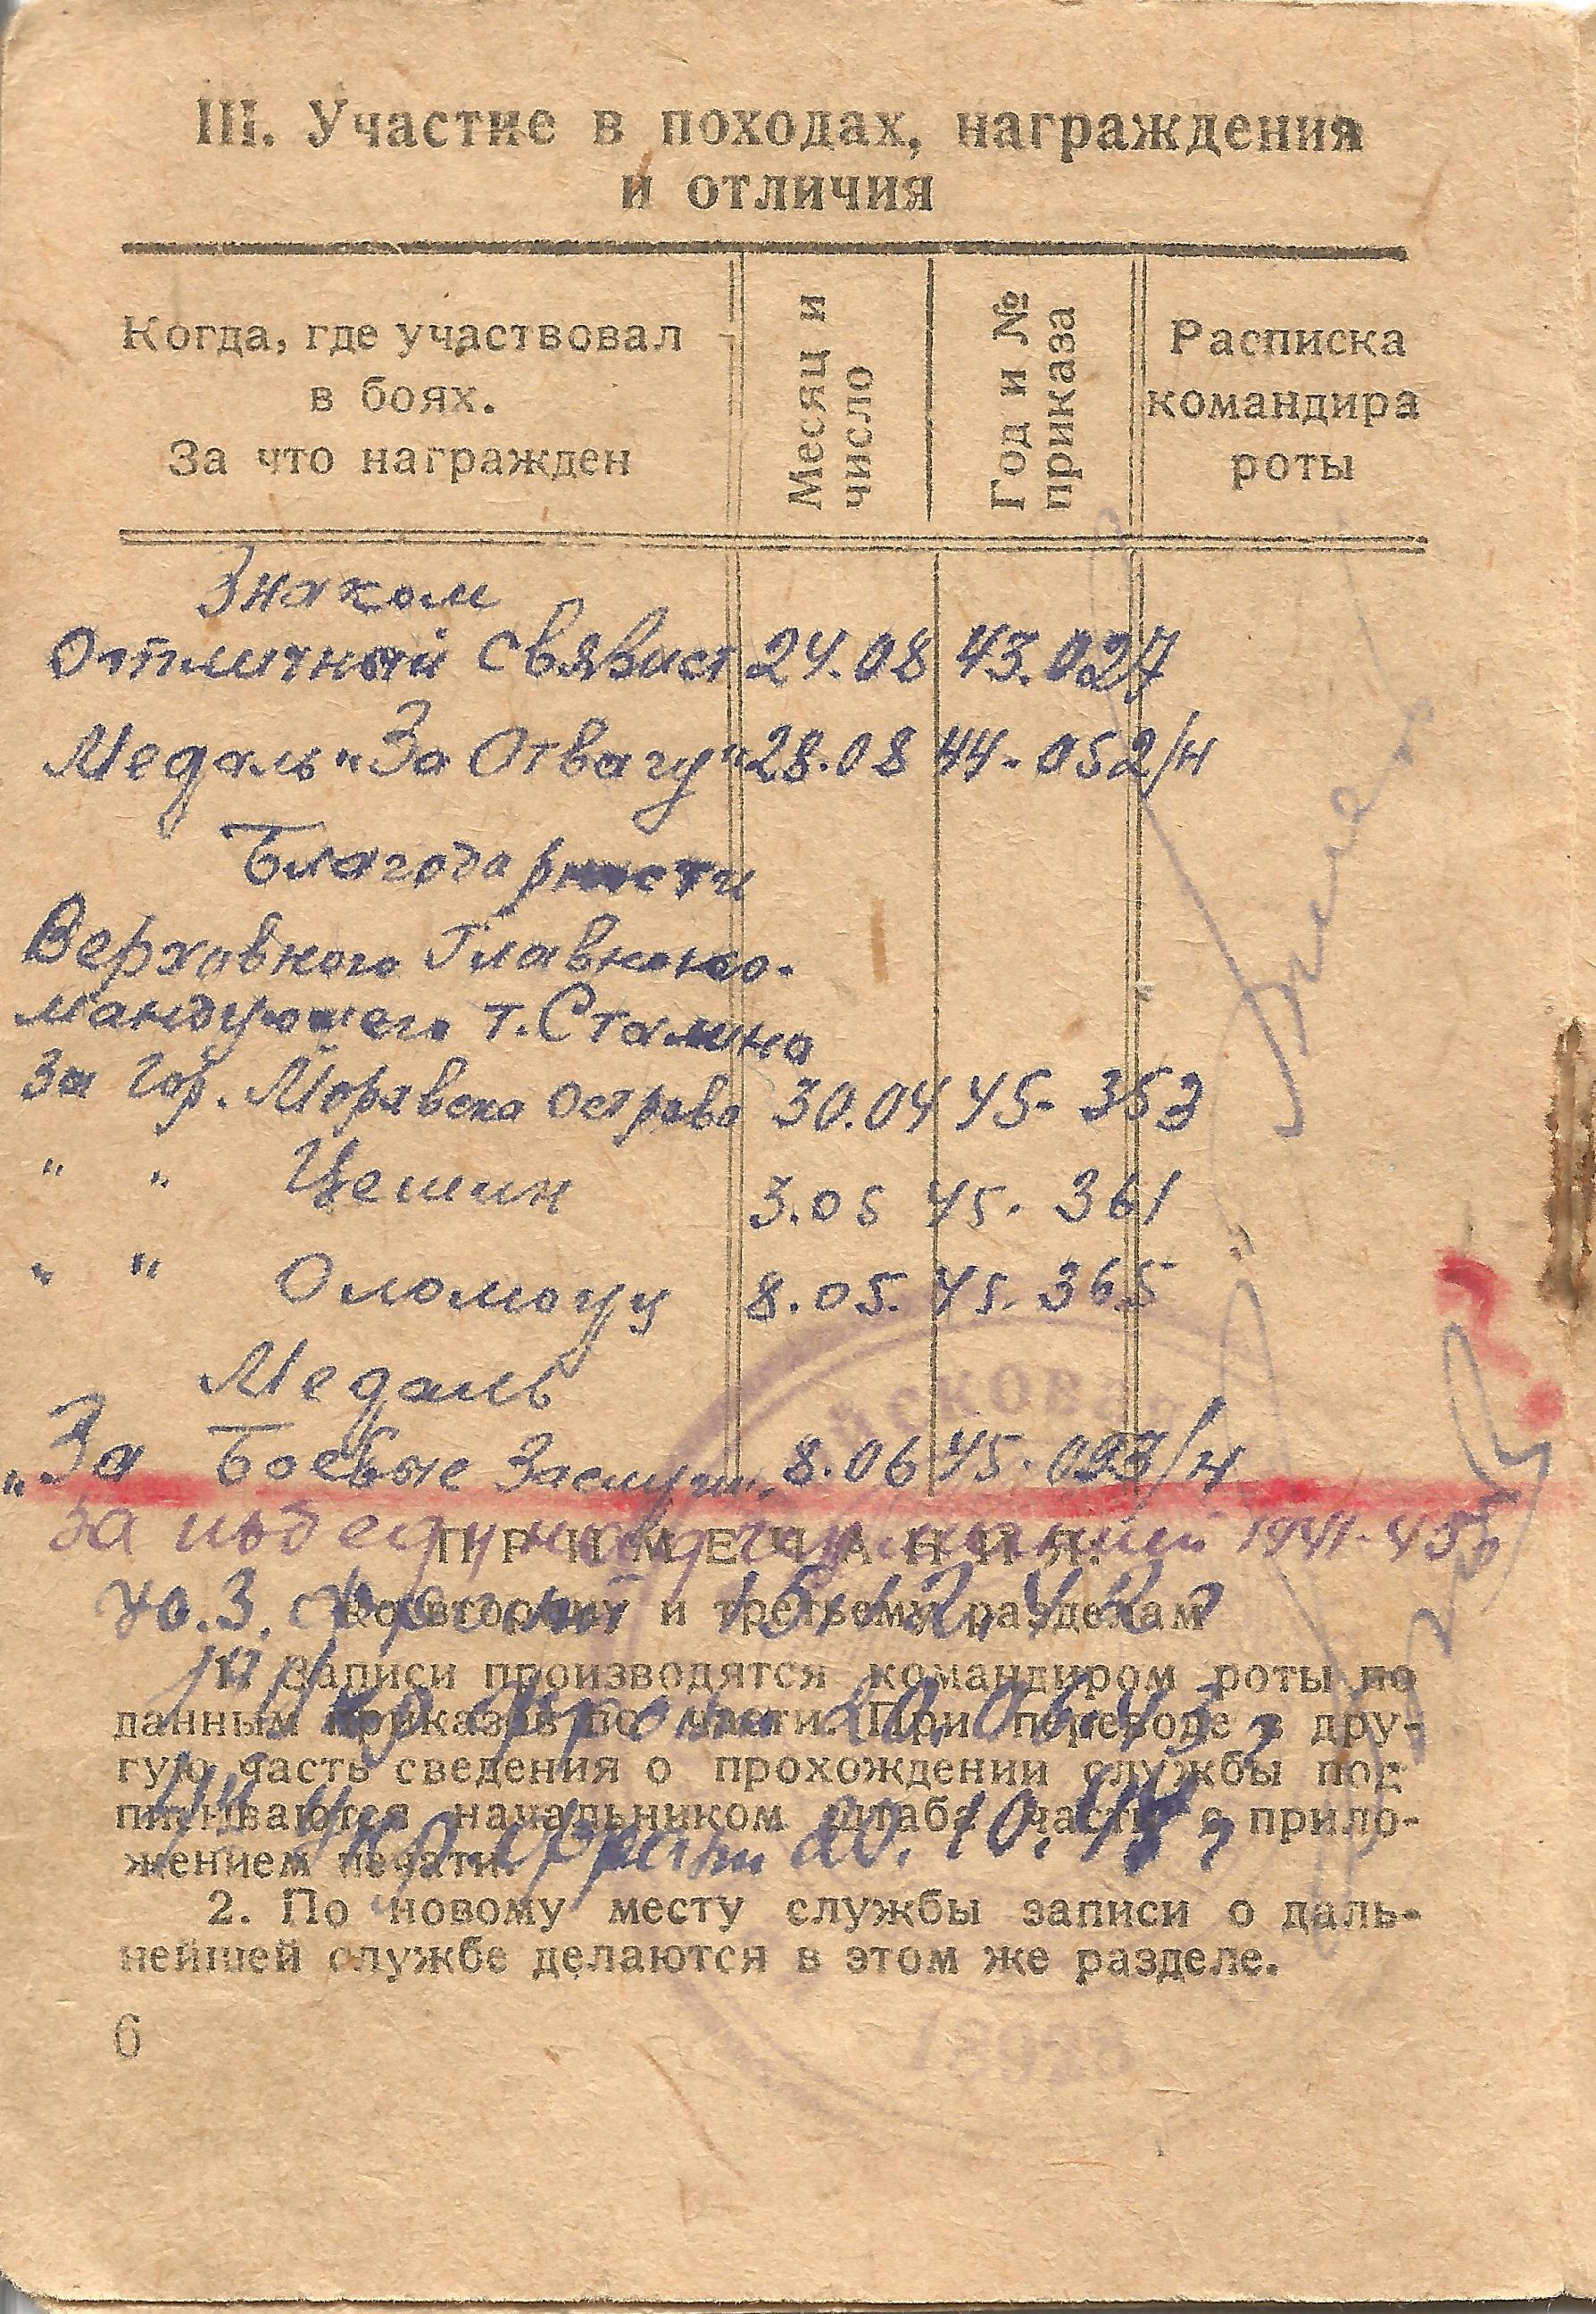 III. Участие в походах, награждения
и отличия
Когда, где участвовал
в боях.
За что награжден
Месяц и
число
Год и №
приказа
Расписка
командира
роты
Знаком
Отличный связист 24.08 43. 027
Медаль "За Отвагу" 28.08 44. 052/н
Благодарности
Верховного Главноко-
мандующего т. Сталина
За гор. Моравска острава 30.04 45- 353
" " Цешин 3.05 45. 361
" " Оломоуц 8.05. 45. 365
Медаль
"За Боевые Заслуги" 8.06 45. /н
За победу над 1941-45
ПРИМЕЧАНИЯ.
Ко второму и третьему разделам
1. Записи производятся командиром роты по
данным приказов по части. При переводе в дру-
гую часть сведения о прохождении службы под-
писываются начальником штаба части с прило-
жением печати.
4 Укр. фронт 20. 10.
2. По новому месту службы записи о даль-
нейшей службе делаются в этом же разделе.
6